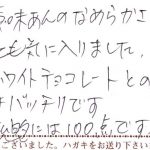 味あんのなめらかさ
も気に入りました。
ワイトチョコレートとの
バッチリです
的には100点です。
ございました。ハガキをお送り下さい